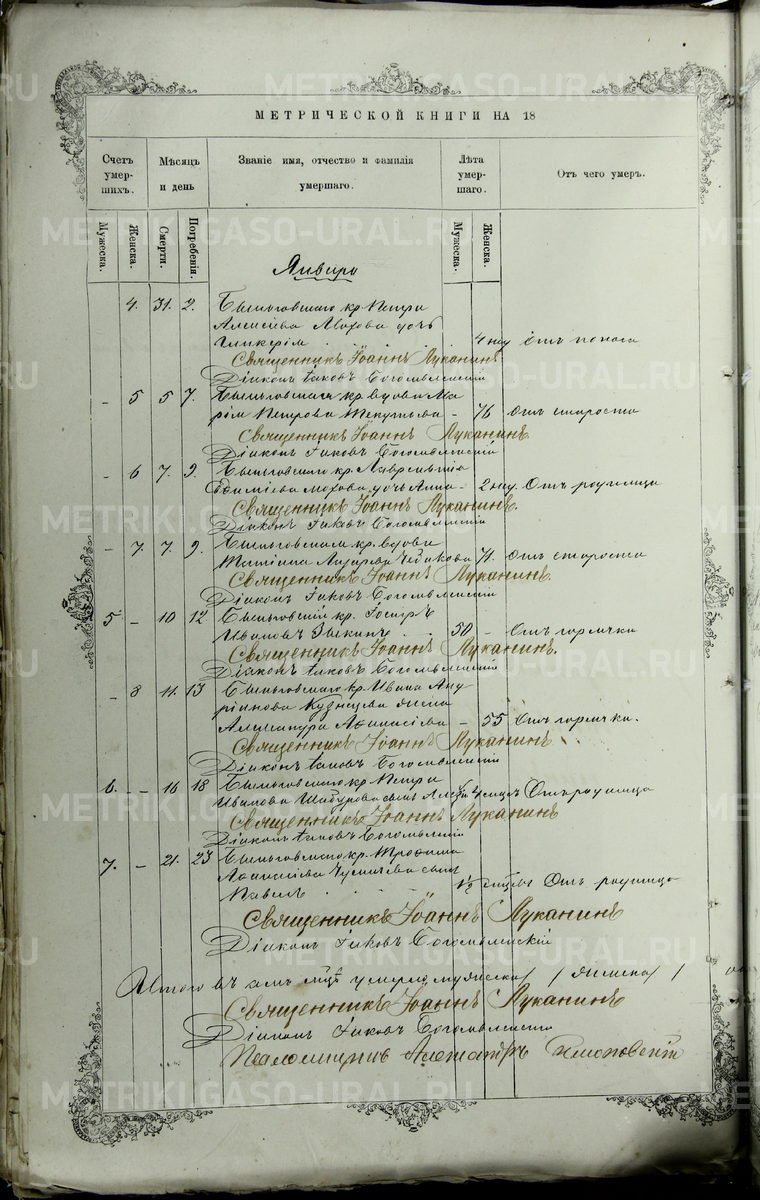 МЕТРИЧЕСКОЙ КНИГИ НА 18
Счетъ умершихъ.
Мѣсяцъ и день
Званіе имя, отчество и фамилія умершаго.
Лѣта умершаго.
Отъ чего умеръ.
Мужеска.
Женска.
Смерти.
Погребенія.
Мужеска.
Женска.
Января
4. 31. 2. Быньговскаго кр. Петра
дочь
Гликерія 4 нед Отъ поноса
Священникъ Іоаннъ Луканинъ
Діаконъ Іаковъ Богоявленскій
- 5 5 7. Быньговская кр. вдова Ма
рія Петрова - 76 Отъ старости
Священникъ Іоаннъ Луканинъ.
Діаконъ Іаковъ Богоявленскій
- 6 7. 9. Быньговскаго кр. Лаврентія
Мохова дочь Анна - 2 нед. Отъ родимца
Священникъ Іоаннъ Луканинъ.
Діаконъ Іаковъ Богоявленскій
- 7. 7. 9. Быньговская кр. вдова
71. Отъ старости
Священникъ Іоаннъ Луканинъ.
Діаконъ Іаковъ Богоявленскій
5 - 10 12 Быньговскій кр.
Ивановъ Зыкинъ 50 - Отъ горячки
Священникъ Іоаннъ Луканинъ.
Діаконъ Іаковъ Богоявленскій
- 8 11. 13 Быньговскаго кр. Ивана Анд
ріянова Кузнецова жена
Александра Афанасіева - 55 Отъ горячки.
Священникъ Іоаннъ Луканинъ
Діаконъ Іаковъ Богоявленскій
6. - 16 18 Быньговскаго кр. Петра
Иванова сынъ Отъ родимца
Священникъ Іоаннъ Луканинъ
Діаконъ Іаковъ Богоявленскій
7. - 21. 23 Быньговскаго кр. Трофима
Афанасіева сынъ
Павелъ 1½ Отъ родимца
Священникъ Іоаннъ Луканинъ
Діаконъ Іаковъ Богоявленскій
Итого въ умерло мужеска / женска /
Священникъ Іоаннъ Луканинъ
Діаконъ Іаковъ Богоявленскій
Псаломщикъ Александръ
METRIKI.GASO-URAL.RU